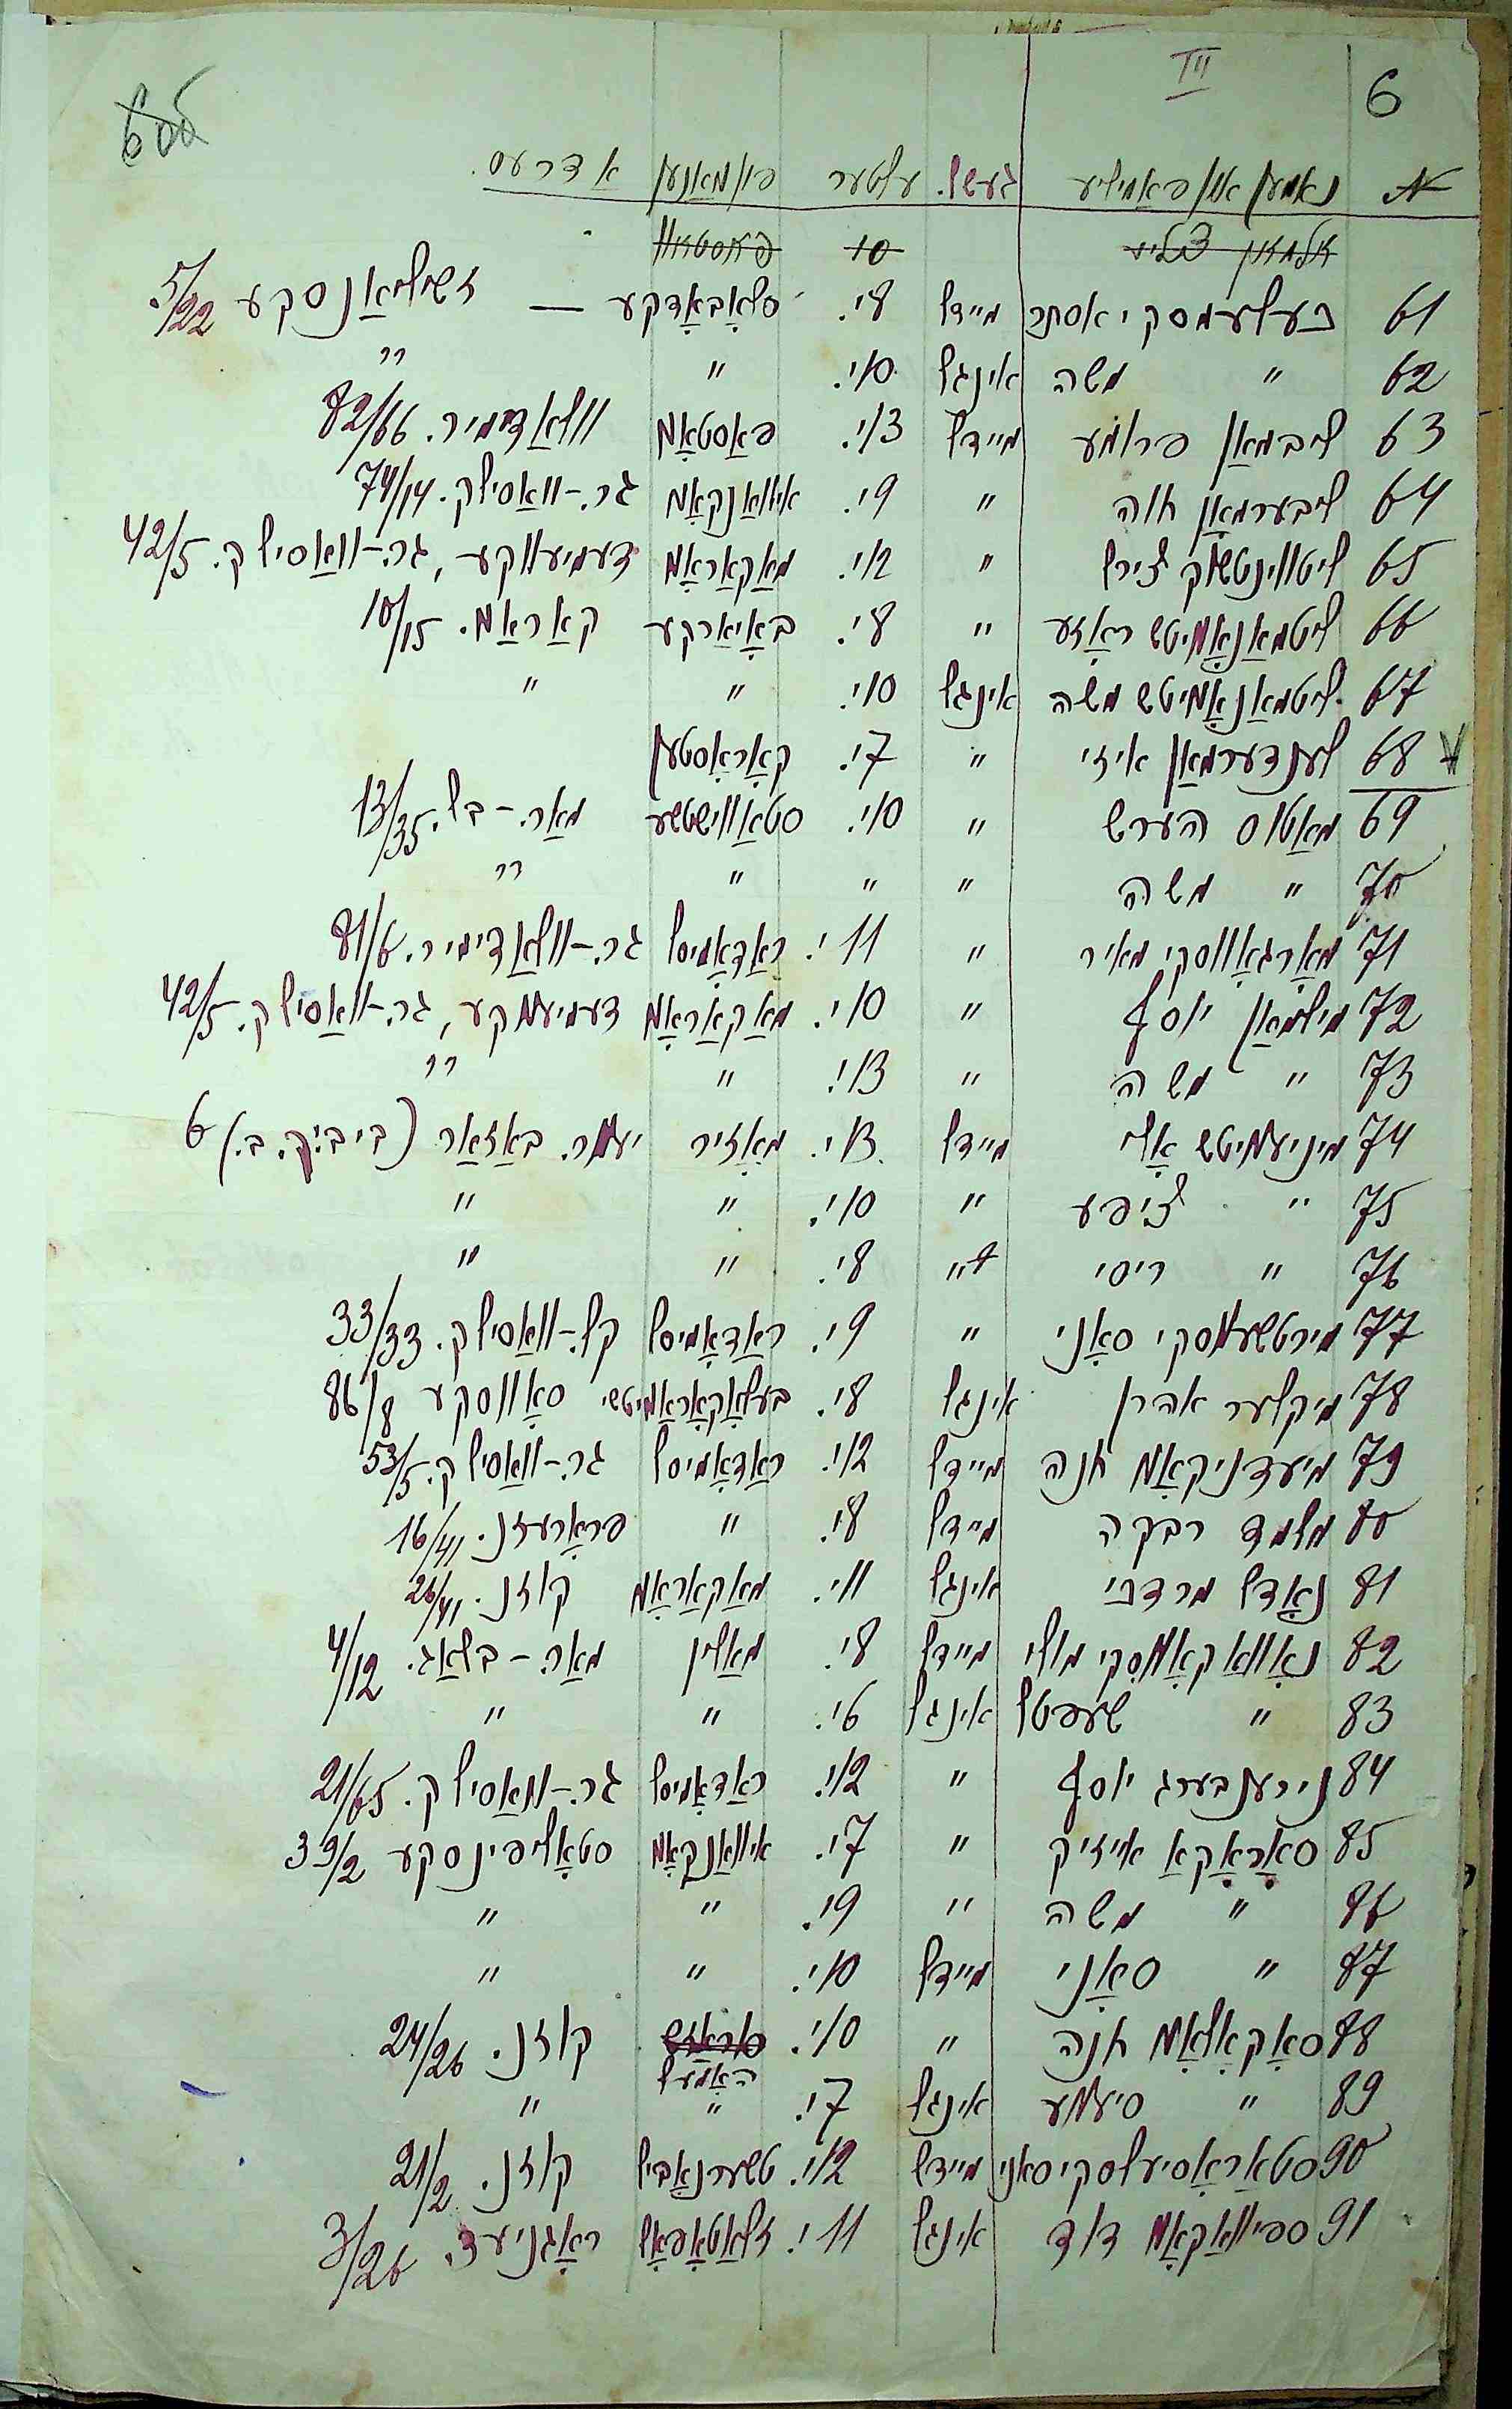 6 III
№ נאָמען און פאַמיליע געשל. עלטער פון מאַנען אדרעס.
10
61 בעלעמסקי אסתר מיידל 8י. סלאָבאָדקע — זשיליאַנסקע 5/22
62 " משה אינגל 10י. " "
63 ליבמאַן פרומע מיידל 13י. פאַסטאָוו וולאַדימיר. 82/66
64 ליבערמאַן חוה " 9י. איוואַנקאָוו גר.-וואַסילק. 74/14
65 ליטווינטשוק צירל " 12י. מאַקאַראָוו דעמיעווקע, גר.-וואַסילק. 42/5
66 ליטמאַנאָוויטש ראָזע " 8י. באָיאַרקע קאַראַוו. 10/15
67 ליטמאַנאָוויטש משה אינגל 10י. " "
68 לענדערמאַן איזי " 7י. קאָראָסטען
69 מאַטוס הערש " 10י. סטאַווישטשע מאַר.-בל. 13/35
70 " משה " " " "
71 מאָרגאָווסקי מאיר " 11י. ראַדאָמיסל גר.-וולאַדימיר. 81/6
72 מילמאַן יוסף " 10י. מאַקאַראָוו דעמיעווקע, גר.-וואַסילק. 42/5
73 " משה " 13י. " "
74 מיניעוויטש אָלי מיידל 13י. מאָזיר יעוור. באַזאַר (ביביק. ב.) 6
75 " ציפע " 10י. " "
76 " ריסי " 8י. " "
77 מירטשעווסקי סאָני " 9י. ראַדאָמיסל קל.-וואַסילק. 33/33
78 מיקלער אהרן אינגל 8י. בעלאָקאָראָוויטשי סאָווסקע 86/8
79 מיעדניקאָוו חנה מיידל 12י. ראַדאָמיסל גר.-וואַסילק. 53/5
80 מלמד רבקה מיידל 8י. " פראָרעזנ. 16/41
81 נאָדל מרדכי אינגל 11י. מאַקאַראָוו קוזנ. 26/41
82 נאָוואַקאָווסקי מולי מיידל 8י. מאַלין מאַר.-בלאַג. 4/12
83 " שעפטל אינגל 6י. " "
84 נירענבערג יוסף " 12י. ראַדאָמיסל גר.-וואַסילק. 21/65
85 סאָראָקאַ אייזיק " 7י. איוואַנקאָוו סטאָליפינסקע 39/2
86 " משה " 9י. " "
87 " סאָני מיידל 10י. " "
88 סאָקאָלאָוו חנה " 10י. האָמעל קוזנ. 24/26
89 " סיעווע אינגל 7י. " "
90 סטאַראָסיעלסקי סאָני מיידל 12י. טשערנאָביל קוזנ. 21/2
91 ספיוואַקאָוו דוד אינגל 11י. זלאַטאָפּאָל ראָגניעד. 3/26